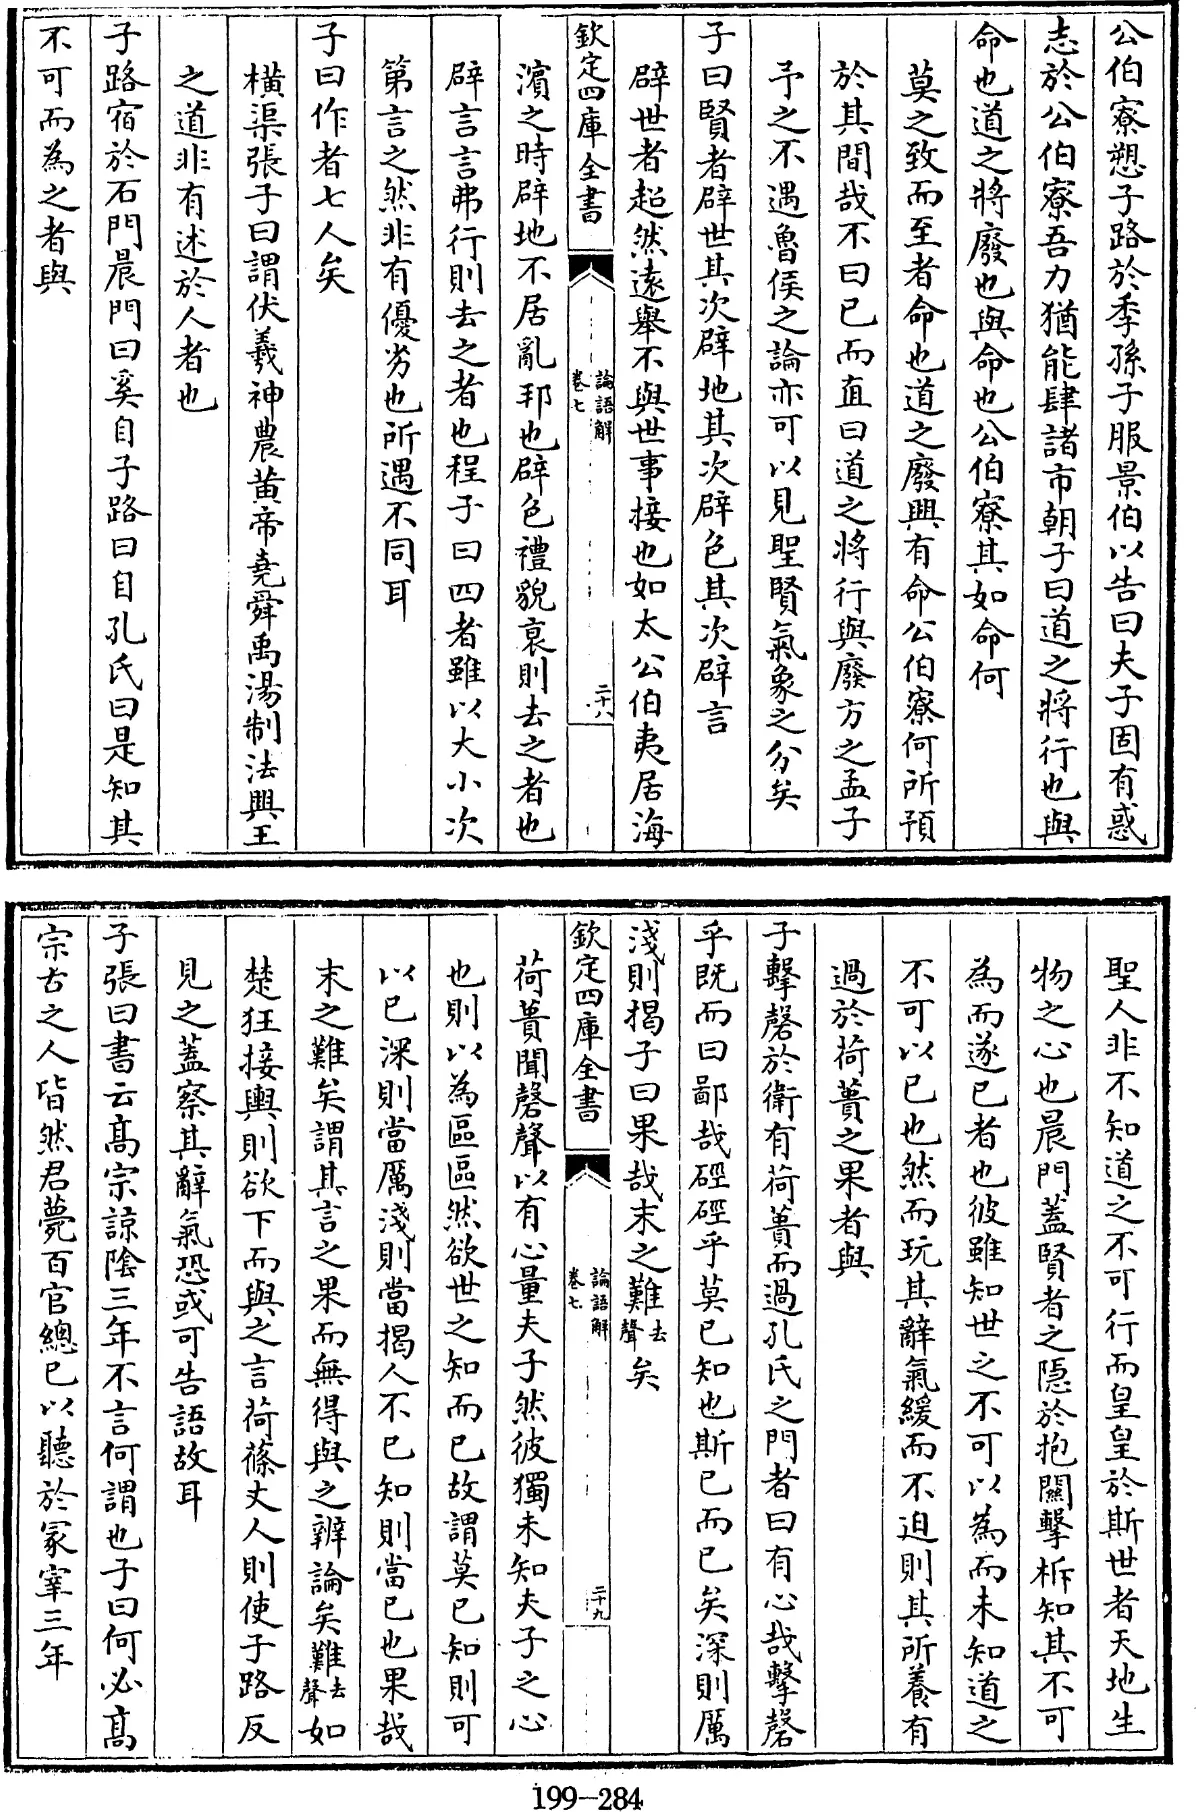 公伯寮愬子路於季孫子服景伯以告曰夫子固有惑
志於公伯寮吾力猶能肆諸市朝子曰道之將行也與
命也道之將廢也與命也公伯寮其如命何
莫之致而至者命也道之廢興有命公伯寮何所預
於其間哉不曰已而直曰道之將行與廢方之孟子
予之不遇魯侯之論亦可以見聖賢氣象之分矣
子曰賢者辟世其次辟地其次辟色其次辟言
辟世者超然遠舉不與世事接也如太公伯夷居海
欽定四庫全書
論語解
卷七
二十八
濱之時辟地不居亂邦也辟色禮貌衰則去之者也
辟言言弗行則去之者也程子曰四者雖以大小次
第言之然非有優劣也所遇不同耳
子曰作者七人矣
橫渠張子曰謂伏羲神農黃帝堯舜禹湯制法興王
之道非有述於人者也
子路宿於石門晨門曰奚自子路曰自孔氏曰是知其
不可而為之者與
聖人非不知道之不可行而皇皇於斯世者天地生
物之心也晨門蓋賢者之隱於抱關擊柝知其不可
為而遂已者也彼雖知世之不可以為而未知道之
不可以已也然而玩其辭氣緩而不迫則其所養有
過於荷蕢之果者與
子擊磬於衛有荷蕢而過孔氏之門者曰有心哉擊磬
乎既而曰鄙哉硜硜乎莫已知也斯已而已矣深則厲
淺則揭子曰果哉末之難去聲矣
欽定四庫全書
論語解
卷七
二十九
荷蕢聞磬聲以有心量夫子然彼獨未知夫子之心
也則以為區區然欲世之知而已故謂莫已知則可
以已深則當厲淺則當揭人不已知則當已也果哉
末之難矣謂其言之果而無得與之辨論矣難去聲如
楚狂接輿則欲下而與之言荷蓧丈人則使子路反
見之蓋察其辭氣恐或可告語故耳
子張曰書云高宗諒陰三年不言何謂也子曰何必高
宗古之人皆然君薨百官總已以聽於冢宰三年
199-284